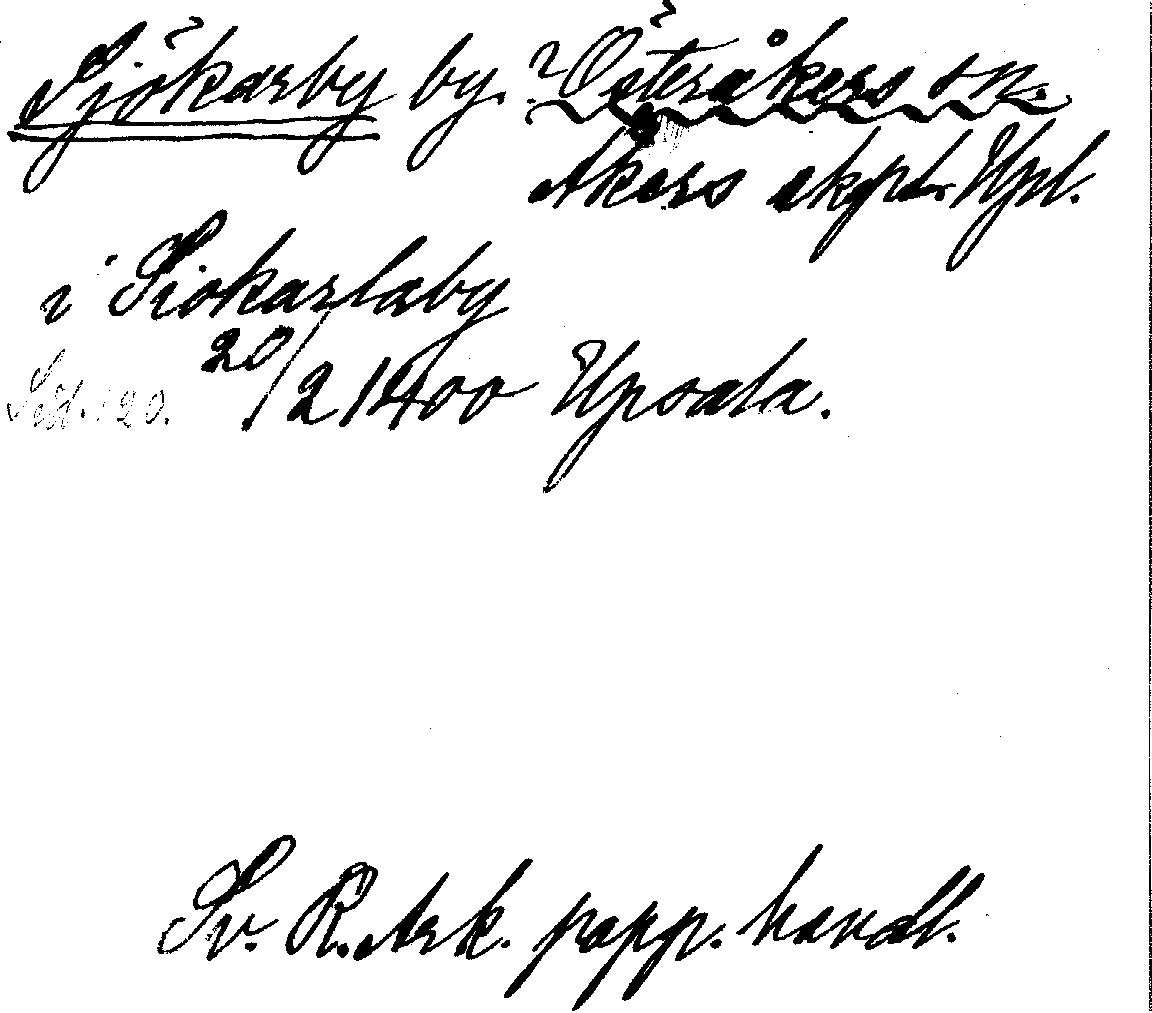 Sjökarby by. ? Österåkers sn.
Åkers skpl. Upl.
i Siokarlaby
20/2 1400 Upsala.
Sv. R. Ark. papp. handl.